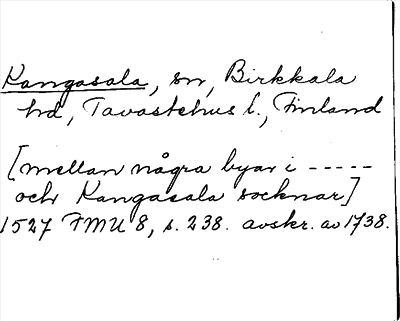 Kangasala, sn, Birkkala
hd, Tavastehus l., Finland
[mellan några byar i -----
och Kangasala socknar]
1527 FMU 8, s. 238. avskr. av 1738.